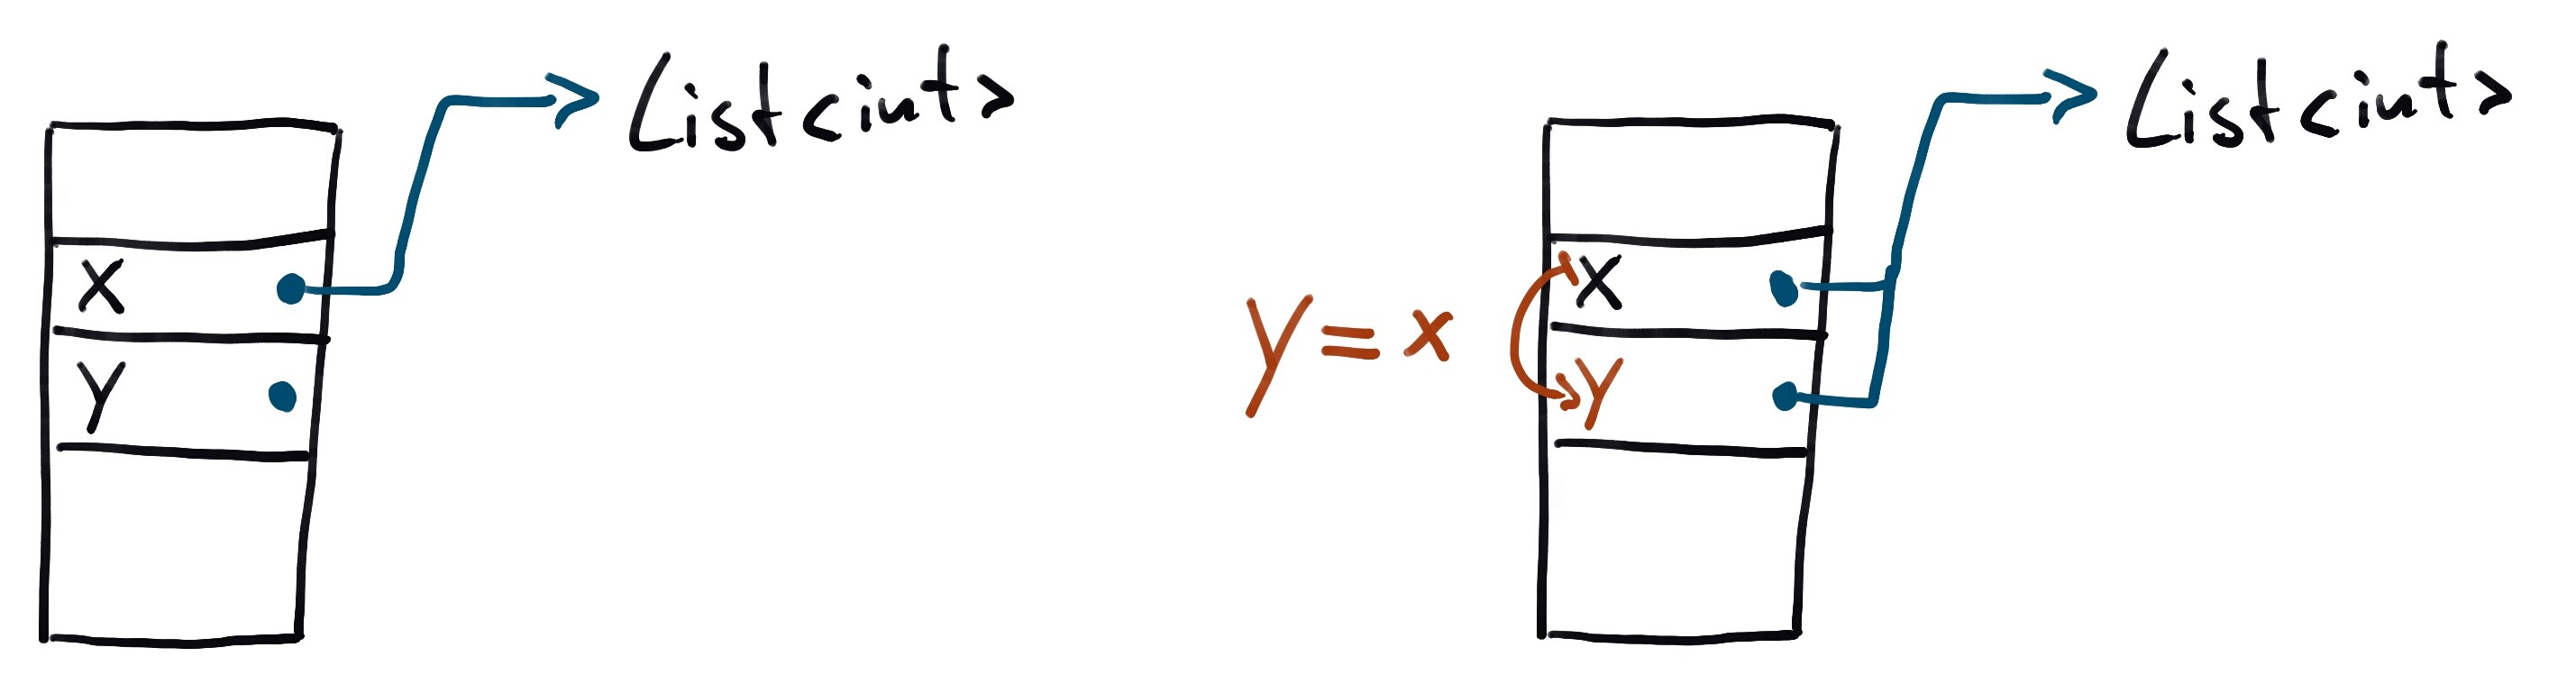 List<int>
X
Y
List<int>
y = x
X
Y